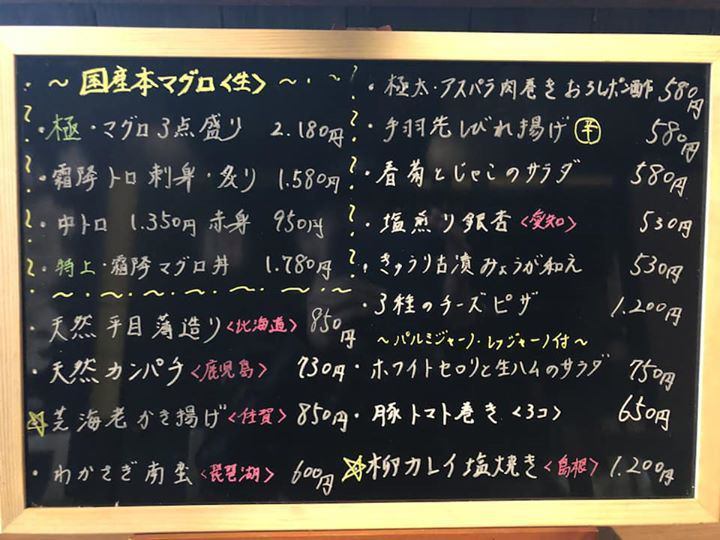 ~国産本マグロ<生>~
・極・マグロ3点盛り 2.180円
・霜降トロ刺身・炙り 1.580円
・中トロ 1.350円 赤身 950円
・特上・霜降マグロ丼 1.780円
・天然平目薄造り<北海道> 850円
・天然カンパチ<鹿児島> 730円
☆芝海老かき揚げ<佐賀> 850円
・わかさぎ南蛮<琵琶湖> 600円
・極太・アスパラ肉巻きおろしポン酢 580円
・手羽先しびれ揚げ 辛 580円
・春菊とじゃこのサラダ 580円
・塩煎り銀杏<愛知> 530円
・きゅうり古漬みょうが和え 530円
・3種のチーズピザ 1.200円
~パルミジャーノ・レッジャーノ付~
・ホワイトセロリと生ハムのサラダ 750円
・豚トマト巻き<3コ> 650円
☆柳カレイ塩焼き<島根> 1.200円